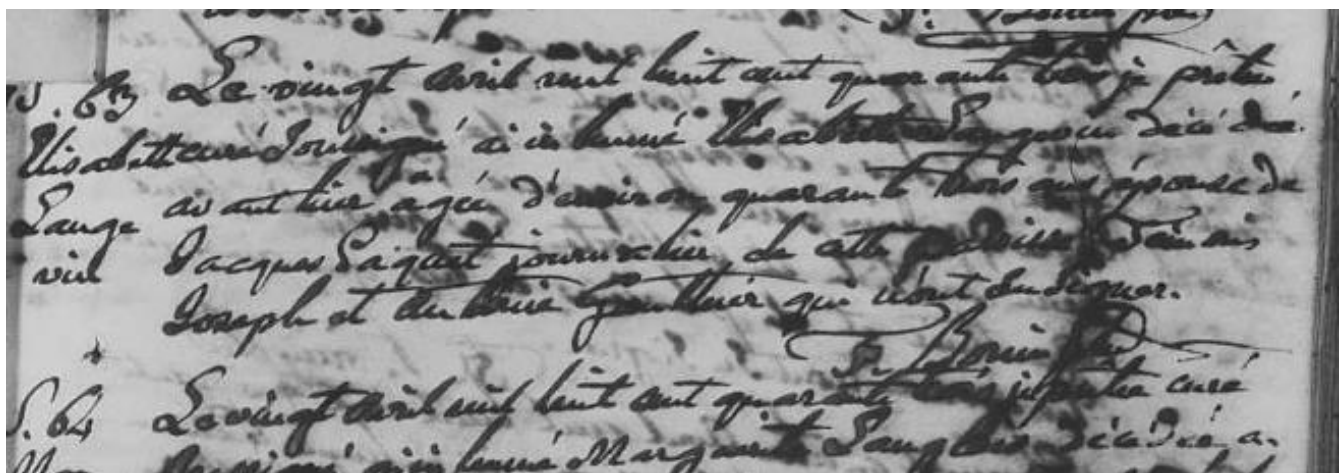 S. 63 Le vingt avril mil huit cent quarante trois je prêtre
Elisabeth curé soussigné ai inhumé Elisabeth Langevin décédée
Lange avant hier agée d'environ quarante trois ans épouse de
vin Jacques Paquet journalier de cette paroisse témoins
Joseph et Antoine Gauthier qui n'ont su signer.
S. 64 Le vingt avril mil huit cent quarante trois je prêtre curé
soussigné ai inhumé Marguerite Langlois décédée a-